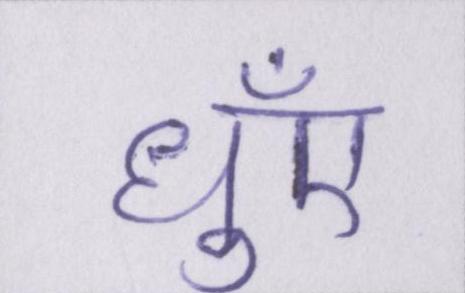 धुएँ